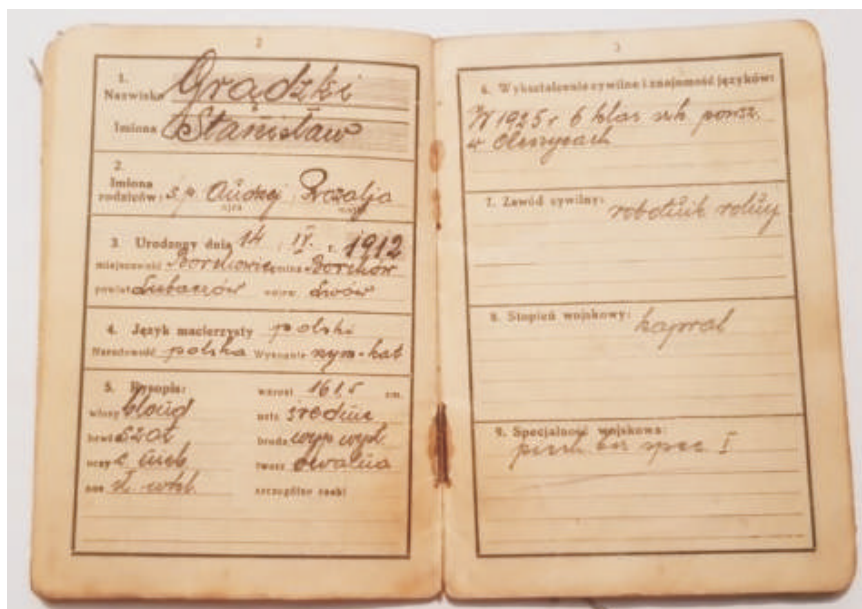 2
1.
Nazwisko Grądzki
Imiona Stanisław
2.
Imiona
rodziców: ś.p. Andrzej Rozalja
ojca
3. Urodzony dnia 14 IV. r. 1912
miejscowość gmina Borchów
powiat Lubaczów wojew. Lwów
4. Język macierzysty polski
Narodowość polska Wyznanie rzym-kat
5. Rysopis: wzrost 161.5 cm.
włosy blond usta średnie
brwi broda
oczy c. nieb twarz owalna
nos szczególne znaki
3
6. Wykształcenie cywilne i znajomość języków:
W 1925 r 6 klas szk powsz.
w Oleszycach
7. Zawód cywilny: robotnik rolny
8. Stopień wojskowy: kapral
9. Specjalność wojskowa:
spec I